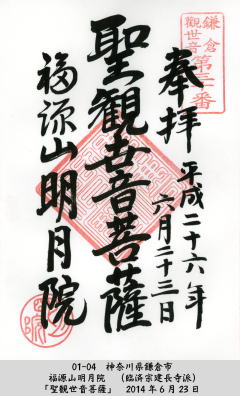 鎌倉
觀世音
第三十番
奉拝
平成二十六年
六月二十三日
聖観世音菩薩
福源山明月院
01-04 神奈川県鎌倉市
福源山明月院 (臨済宗建長寺派)
「聖観世音菩薩」 2014年6月23日